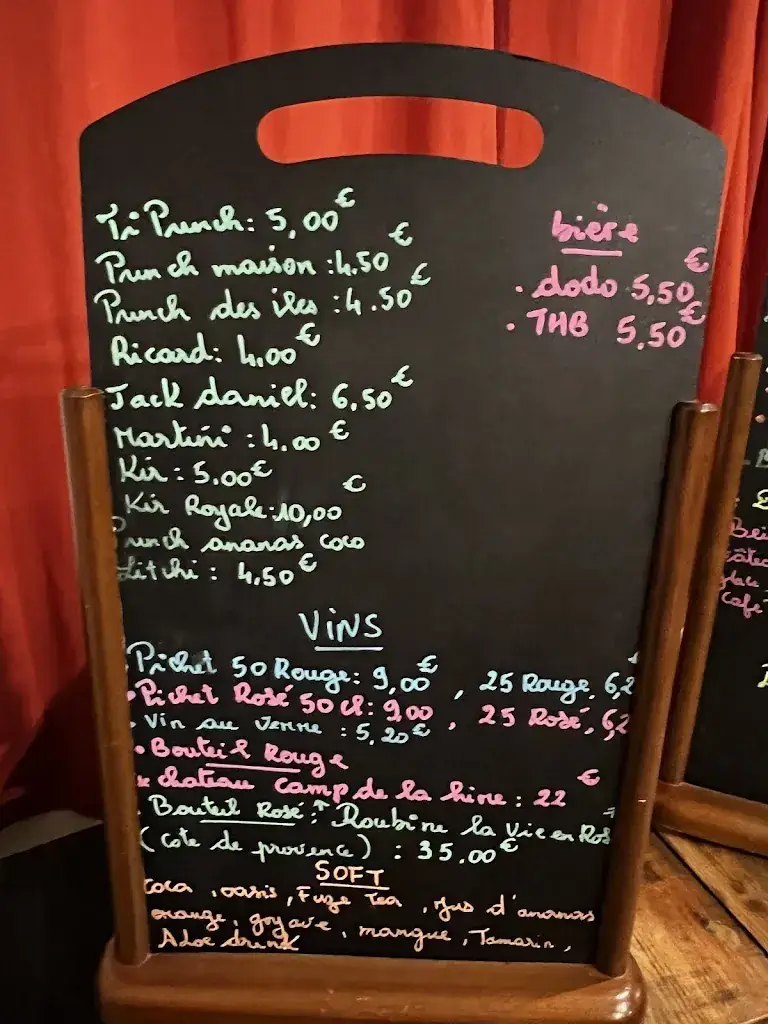 Ti Punch: 5,00€
Punch maison: 4.50€
Punch des iles: 4.50€
Ricard: 4,00€
Jack daniel: 6,50€
Martini: 4.00€
Kir: 5.00€
Kir Royale: 10,00€
Punch ananas coco
Litchi: 4,50€
bière
. dodo 5,50€
. THB 5,50€
VINS
Pichet 50 Rouge: 9,00€, 25 Rouge, 6,2
Pichet Rosé 50 cl: 9,00, 25 Rosé, 6,2
Vin au verre: 5,20€
Bouteil Rouge
chateau camp de la hire: 22€
Bouteil Rosé: Roubine la Vie en Ros
(cote de provence): 35.00€
SOFT
coca, oasis, Fuze tea, jus d'ananas
orange, goyave, mangue, Tamarin,
Aloe drink
Bei
café